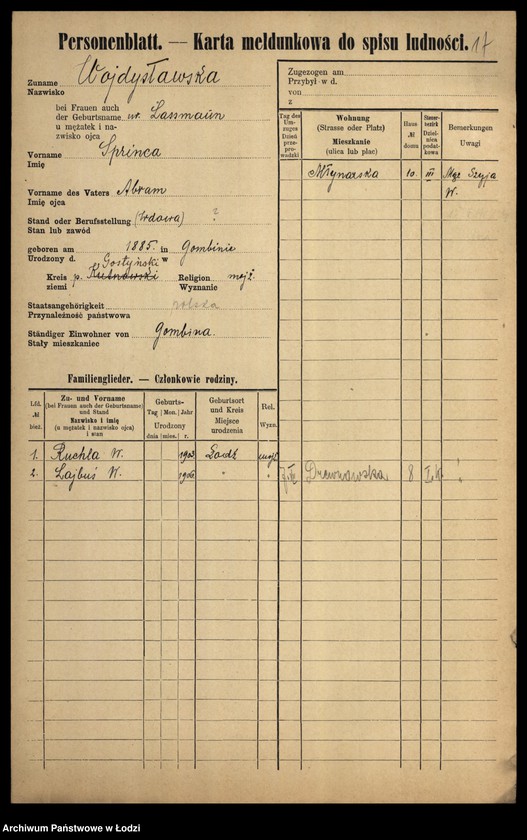 Personenblatt. — Karta meldunkowa do spisu ludności. 17
Zuname Wojdysławska
Nazwisko
bei Frauen auch
der Geburtsname ur. Lassmann
u mężatek i na-
zwisko ojca
Vorname Sprinca
Imię
Vorname des Vaters Abram
Imię ojca
Stand oder Berufsstellung (wdowa) ?
Stan lub zawód
geboren am 1885. in Gombinie
Urodzony d. w
Gostyński
Kreis p. Kutnowski Religion mojż.
ziemi Wyznanie
Staatsangehörigkeit polska
Przynależność państwowa
Ständiger Einwohner von Gombina.
Stały mieszkaniec
Familienglieder. — Członkowie rodziny.
Lfd. № bież.
Zu- und Vorname
(bei Frauen auch der Geburtsname
und Stand
Nazwisko i imię
(u mężatek i nazwisko ojca)
i stan
Geburts-
Tag Mon. Jahr
Urodzony
dnia mies. r.
Geburtsort
und Kreis
Miejsce
urodzenia
Rel.
Wyzn.
1. Ruchla W. 1903 Łódź mojż.
2. Lajbuś W. 1906 " "
Zugezogen am
Przybył w d.
von
z
Tag des
Um-
zuges
Dzień
prze-
prowadzki
Wohnung
(Strasse oder Platz)
Mieszkanie
(ulica lub plac)
Haus
№
domu
Steuer-
bezirk
Dziel-
nica
podat-
kowa
Bemerkungen
Uwagi
Młynarska 10. III Szyja
W.
Drewnowska 8
Archiwum Państwowe w Łodzi